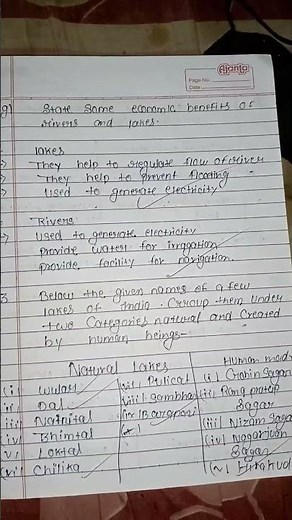 Ajanta
Page No.
Date
g) State Some economic benefits of
rivers and lakes.
lakes
They help to regulate flow of river
They help to prevent flooding
Used to generate electricity
Rivers
Used to generate electricity
Provide water for irrgation
provide facility for navigation.
3 Below the given names of a few
lakes of India. Group them under
two Categories natural and Created
by human beings-
Natural Lakes
Human mad
(i) Wular (vii) Pulicat (i) Gobin Sagar
ii) Dal viii) Sambha (ii) Rana pratap
Sagar
iii) Nainital ix) Barapani (iii) Nizam Saga
iv) Bhimtal (x) (iv) Nagarjuna
Sagar
v) Loktal
(vi) Chilika (v) Hirakud